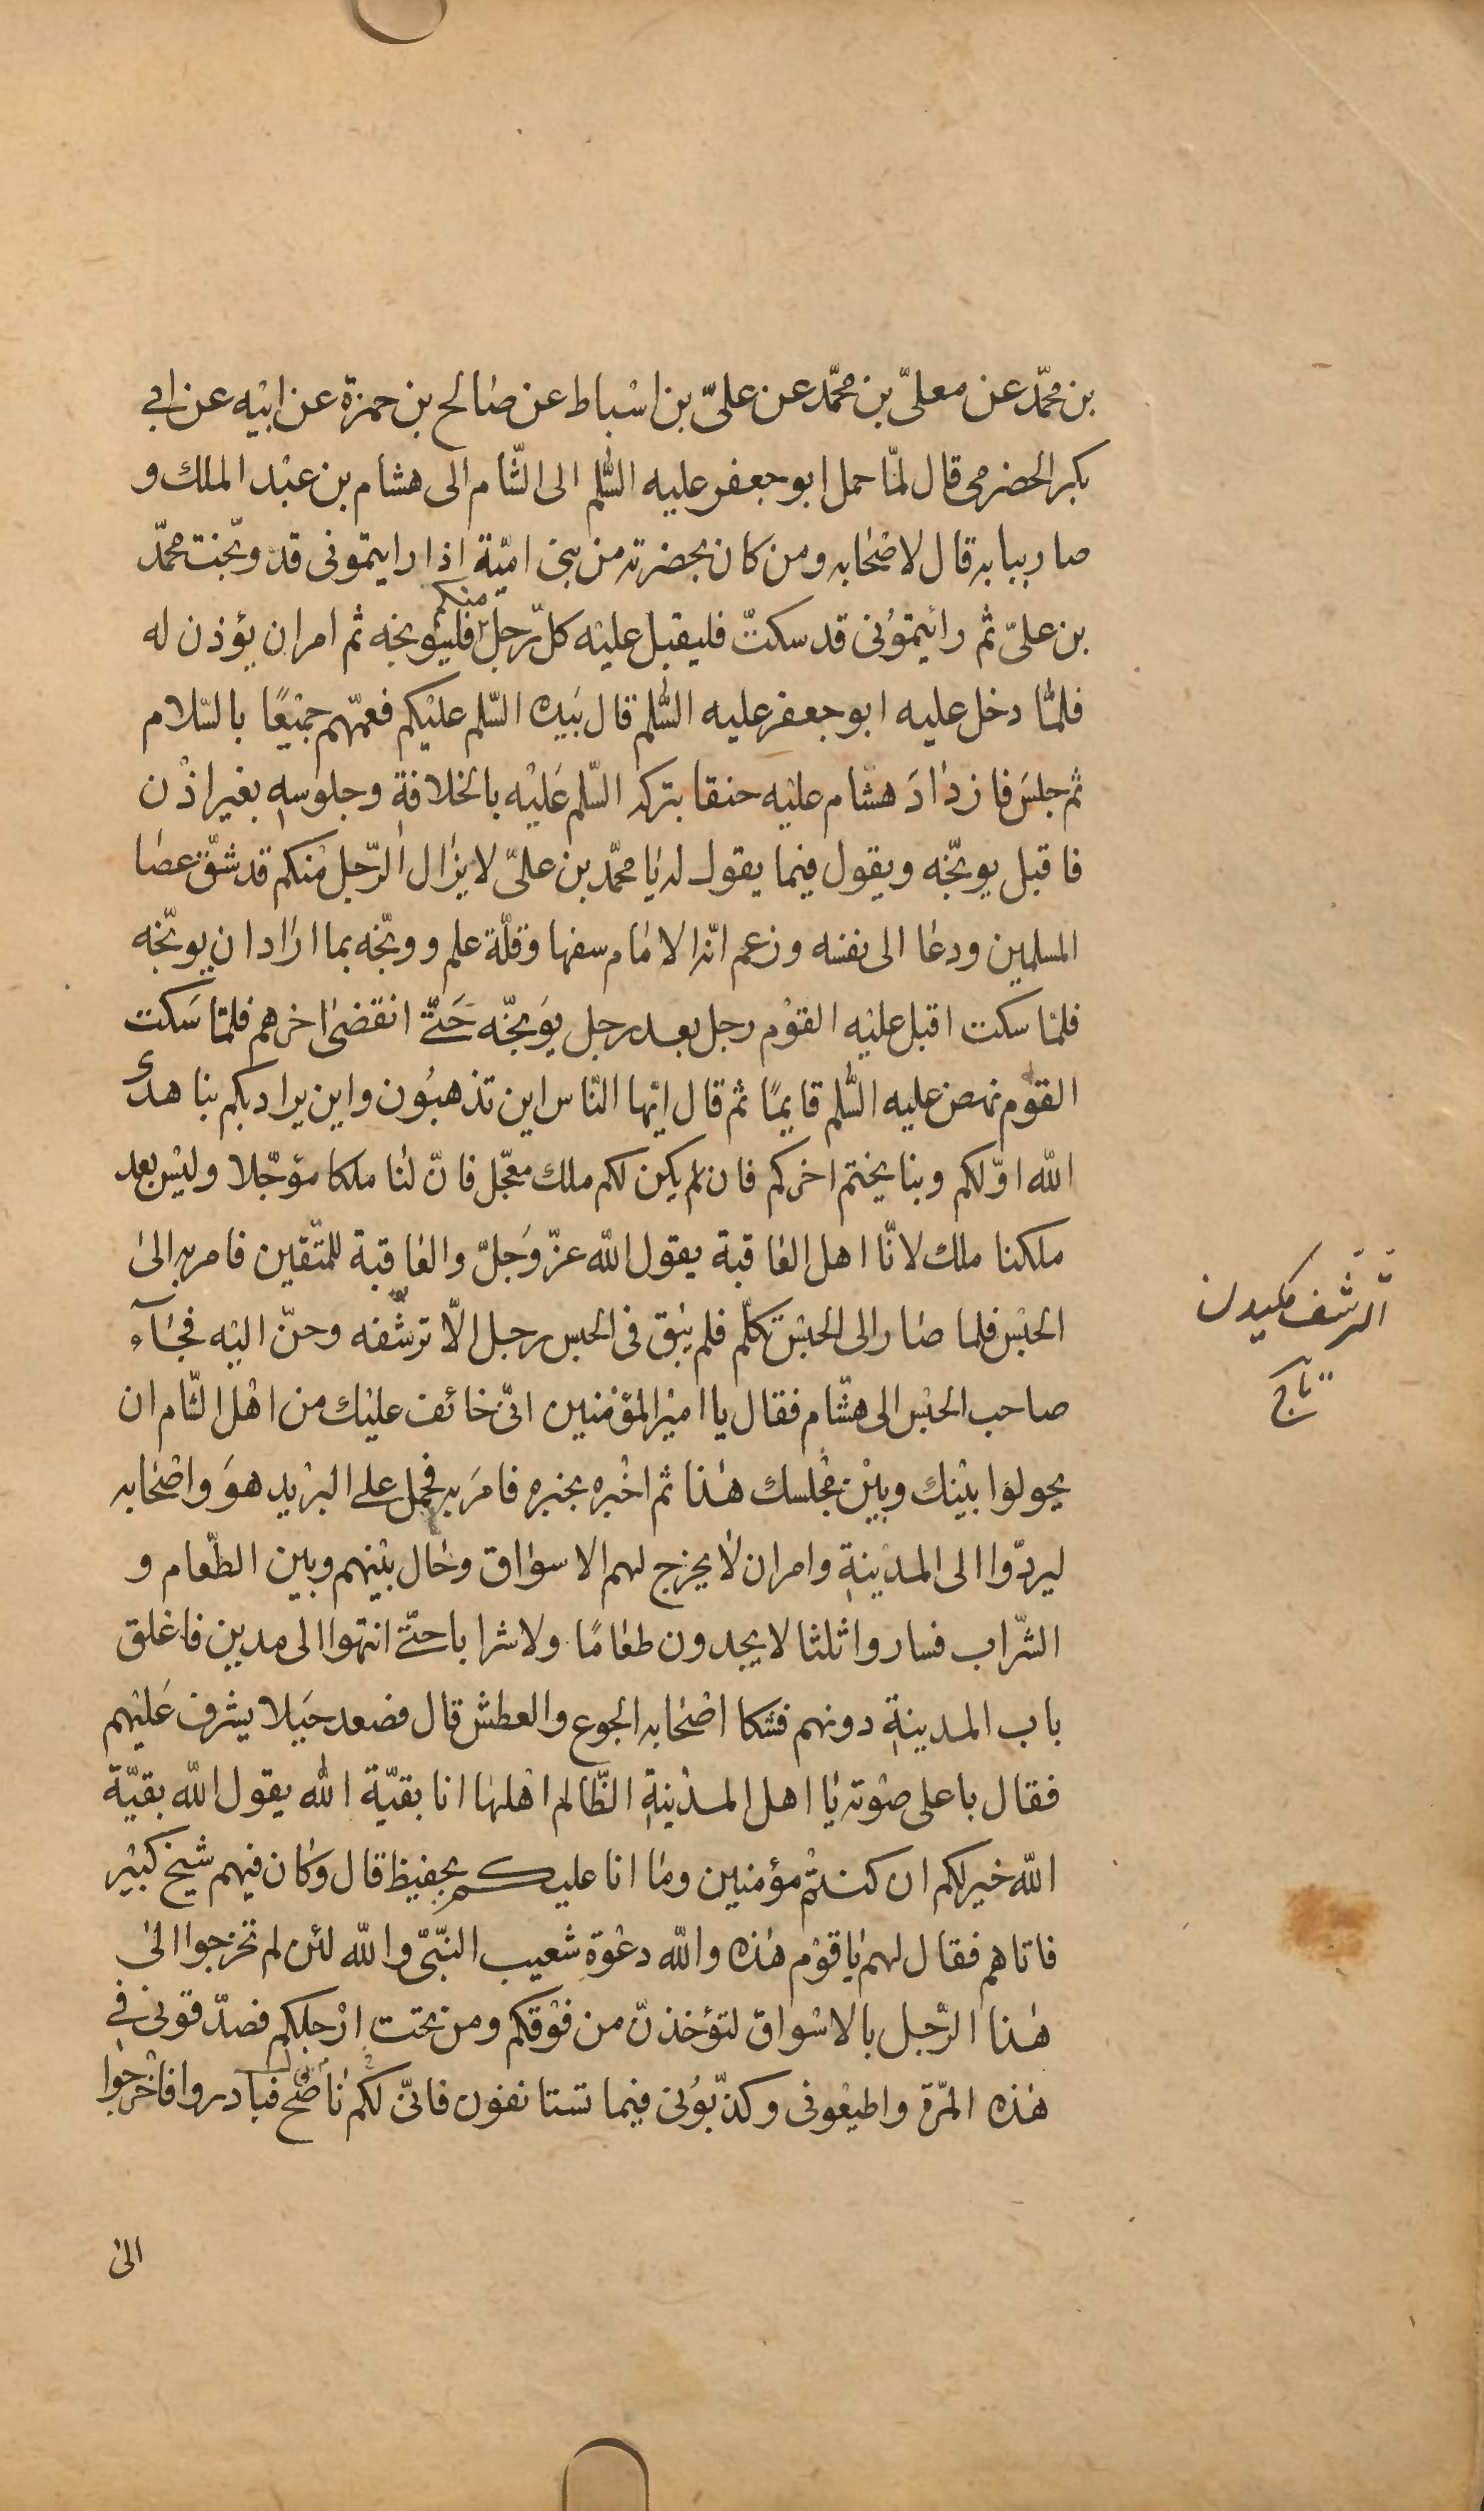 بن محمّد عن معلىّ بن محمّد عن علىّ بن اسْباط عن صٰالح بن حمزة عن ابيْه عن ابي
بكر الحضرمى قال لمّا حمل ابو جعفر عليه السّلم الى الشّام الى هشام بن عبْد الملك و
صار ببابه قال لاصْحٰابه ومن كان بحضرته من بنى اميّة اذا رايتمونى قد وبّخت محمّد
بن علىّ ثم رائيتموُنى قد سكتّ فليقبل عليْه كلّ رجل منكم فليُوبخه ثم امر ان يؤذن له
فلمّٰا دخل عليه ابو جعفر عليه السّٰلم قال بَيده السّلم عليْكم فعمّهم جميْعًا بالسّلام
ثم جلسَ فازدٰادَ هشام عليْه حنقا بتركه السّلم عَليْه بالخلافةِ وجلوسهِ بغير اذْن
فاقبل يوبّخه ويقول فيما يقول له يٰا محمّد بن علىّ لا يزٰال الرّجل منكم قد شقّ عصٰا
المسلمين ودعٰا الى نفسه وزعم انّه الامٰام سفها وقلّة علم ووبّخه بما ارٰاد ان يوبّخه
فلمّا سكت اقبل عليْه القوْم رجل بعد رجل يوَبّخه حَتّىٰ انقضىٰ اخرهم فلمّا سَكت
القوْم نهض عليه السّٰلم قايمًا ثم قال ايّها النّاس اين تذهبُون واين يراد بكم بنا هدى
اللّه اوّلكم وبنا يختم اخركم فان لم يكن لكم ملك معجّل فانّ لنٰا ملكا مؤجّلا وليْس بعد
ملكنا ملك لانّٰا اهل العٰاقبة يقول اللّه عزّ وَجلّ والعٰاقبة للمتّقين فامر به الىٰ
الحبْس فلما صٰار الى الحبْس تكلّم فلم يبْق فى الحبس رجل الّا ترشّفه وحنّ اليْه فجٰآء
صاحب الحبْس الى هشّام فقال يا اميْر المؤمنين انّى خائف عليْك من اهْل الشّام ان
يحولوٰا بيْنك وبيْن مجْلسك هٰذا ثم اخْبره بخبره فامرَ به فحمل على البرْيد هوَ واصْحٰابه
ليردّوا الى المديْنةِ وامر ان لا يخرج لهم الاسوٰاق وحٰال بيْنهم وبين الطّعام و
الشّراب فساروا ثلثا لا يجدون طعٰامًا ولا شرابا حتّىٰ انتهوا الى مدين فاغلق
باب المدينةِ دونهم فشكا اصْحٰابه الجوع والعطش قال فصعد جَبلا يشرف عَليْهم
فقال باعلى صوْته يٰا اهل المديْنةِ الظّالم اهْلهٰا انا بقيّة اللّه يقول اللّه بقيّة
اللّه خير لكم ان كنتمْ مؤمنين ومٰا انا عليكم بحفيظ قال وكٰان فيهم شيخ كبيْر
فاتاهم فقال لهم يٰا قوْم هٰذه واللّه دعْوة شعيب النّبىّ واللّه لئن لم تخرجوا الىٰ
هٰذا الرّجل بالاسْوٰاق لتؤخذنّ من فوْقكم ومن تحت ارْجلكم فصدّقونى فى
هٰذه المرّة واطيعْونى وكذّبوُنى فيما تستانفون فانّى لكم نٰاصح قال فبادروا فاخْرجوا
الىٰ
الترشّف مكيدن
تاج